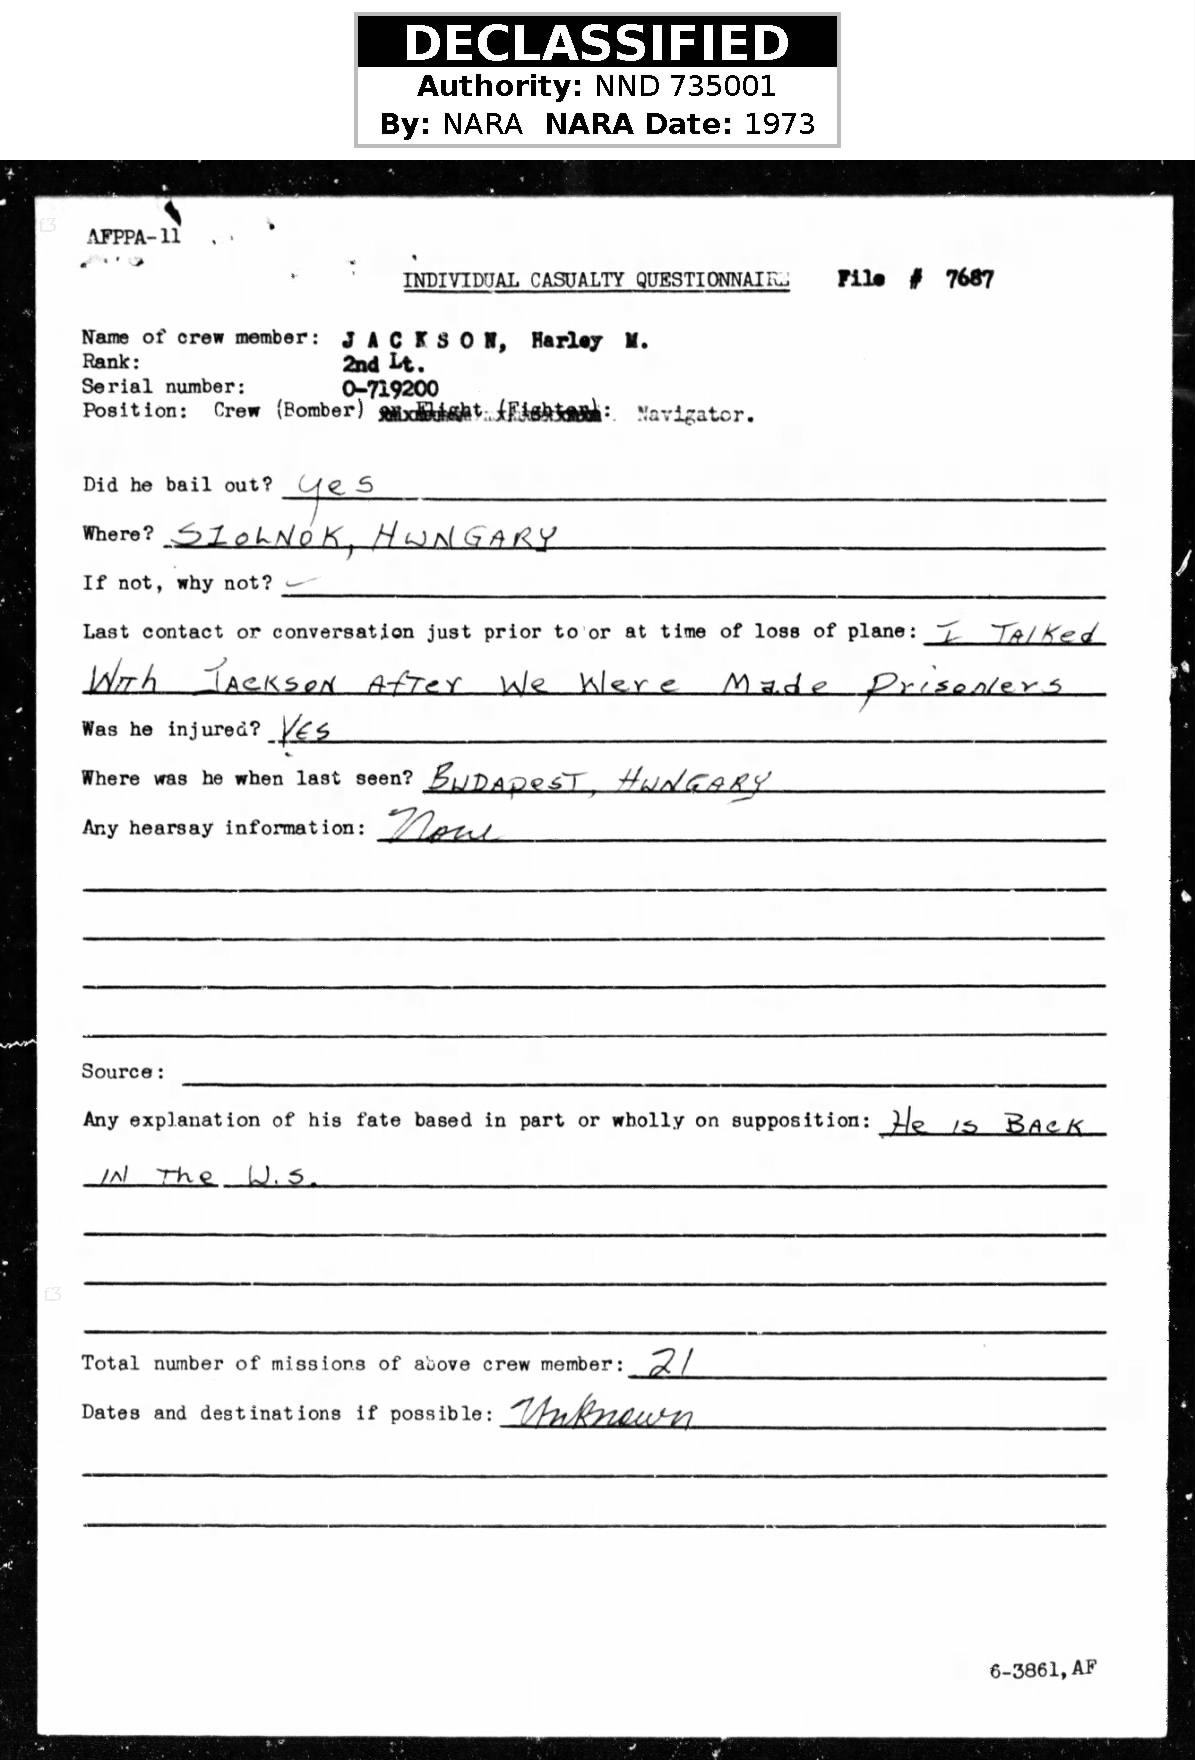 DECLASSIFIED
Authority: NND 735001
By: NARA NARA Date: 1973
AFPPA-11
INDIVIDUAL CASUALTY QUESTIONNAIRE File # 7687
Name of crew member: J A C K S O N, Harley M.
Rank: 2nd Lt.
Serial number: O-719200
Position: Crew (Bomber) or Flight (Fighter): Navigator.
Did he bail out? yes
Where? SZOLNOK, HUNGARY
If not, why not? —
Last contact or conversation just prior to or at time of loss of plane: I TALKed
With JACKSON AfTer We Were Made Prisoners
Was he injured? YES
Where was he when last seen? BUDAPEST, HUNGARY
Any hearsay information: None
Source:
Any explanation of his fate based in part or wholly on supposition: He is BACK
IN The U.S.
Total number of missions of above crew member: 21
Dates and destinations if possible: Unknown
6-3861, AF